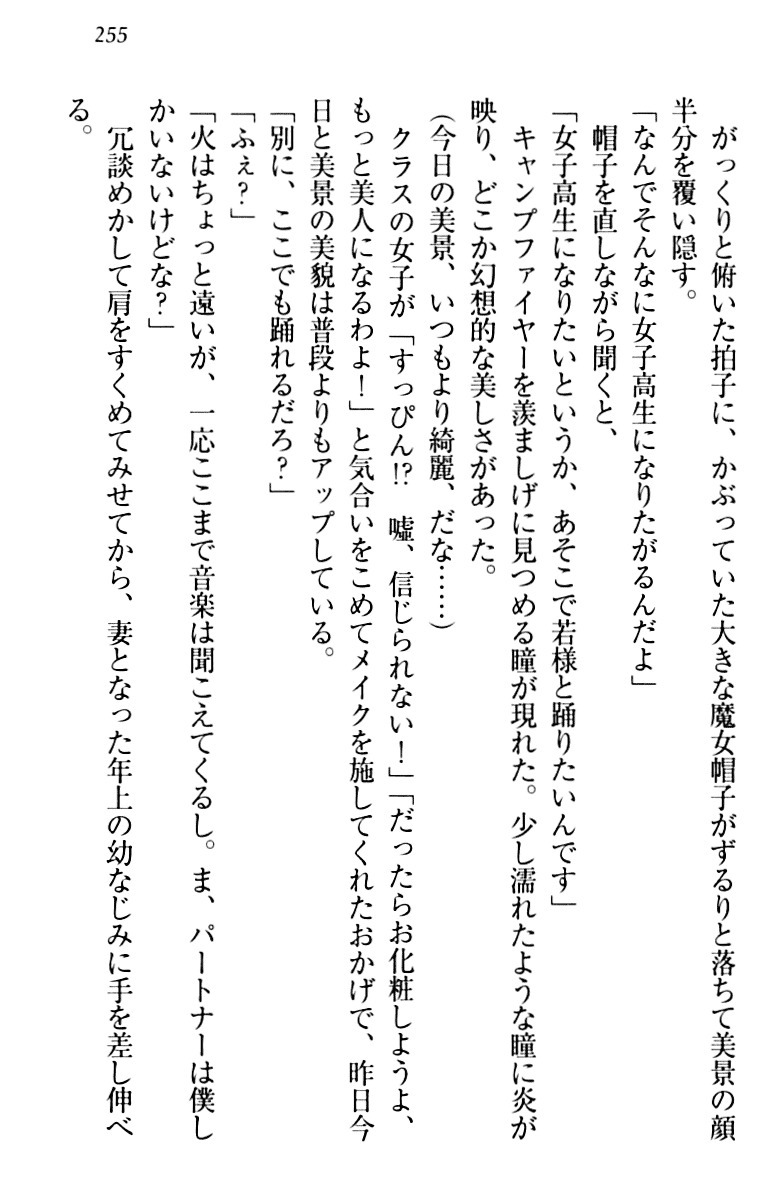 255
　がっくりと俯いた拍子に、かぶっていた大きな魔女帽子がずるりと落ちて美景の顔
半分を覆い隠す。
「なんでそんなに女子高生になりたがるんだよ」
　帽子を直しながら聞くと、
「女子高生になりたいというか、あそこで若様と踊りたいんです」
　キャンプファイヤーを羨ましげに見つめる瞳が現れた。少し濡れたような瞳に炎が
映り、どこか幻想的な美しさがあった。
（今日の美景、いつもより綺麗、だな……）
　クラスの女子が「すっぴん!?　嘘、信じられない！」「だったらお化粧しようよ、
もっと美人になるわよ！」と気合いをこめてメイクを施してくれたおかげで、昨日今
日と美景の美貌は普段よりもアップしている。
「別に、ここでも踊れるだろ？」
「ふぇ？」
「火はちょっと遠いが、一応ここまで音楽は聞こえてくるし。ま、パートナーは僕し
かいないけどな？」
　冗談めかして肩をすくめてみせてから、妻となった年上の幼なじみに手を差し伸べ
る。